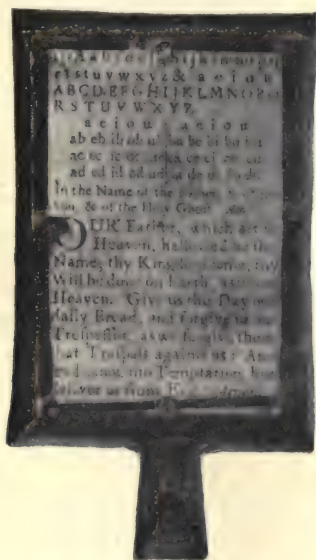 a b c d e f g h i j k l m n o p q
r s t u v w x y z & a e i o u
A B C D E F G H I J K L M N O P Q
R S T U V W X Y Z.
a e i o u a e i o u
ab eb ib ob ub ba be bi bo bu
ac ec ic oc uc ca ce ci co cu
ad ed id od ud da de di do du
In the Name of the
& of the Holy Ghost
OUR Father, which art in
Heaven, hallowed be thy
Name; thy Kingdom come, thy
Will be done on Earth, as it is in
Heaven. Give us this Day our
daily Bread; and forgive us our
Trespasses, as we forgive them
that Trespass against us: And
lead us not into Temptation, but
deliver us from Evil. Amen.